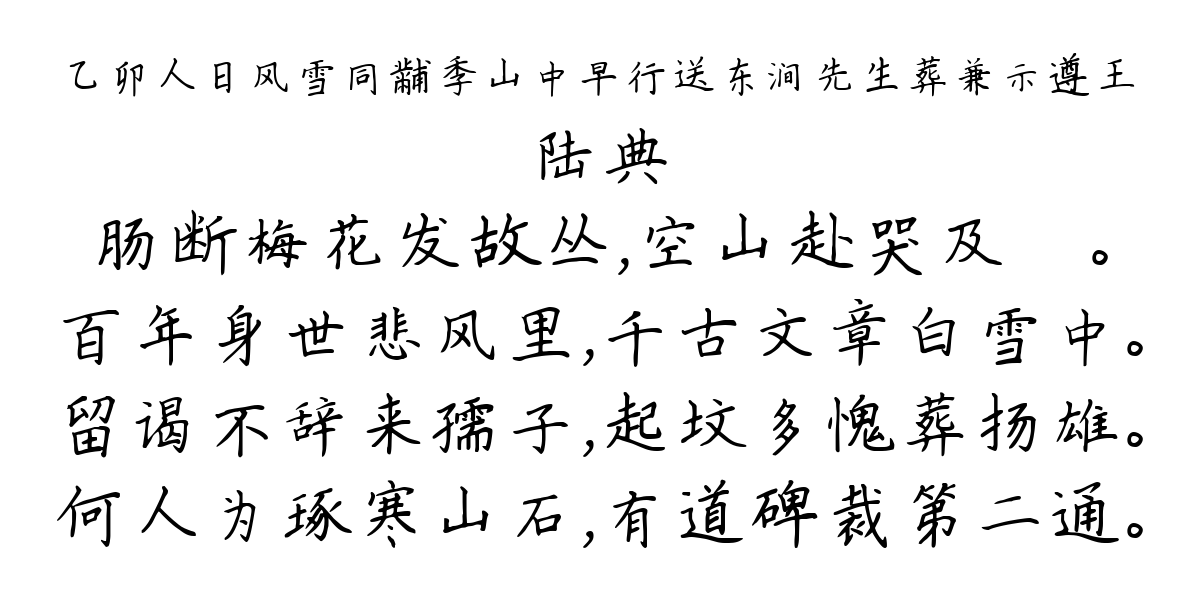 乙卯人日风雪同黼季山中早行送东涧先生葬兼示遵王
陆典
肠断梅花发故丛,空山赴哭及 。
百年身世悲风里,千古文章白雪中。
留谒不辞来孺子,起坟多愧葬扬雄。
何人为琢寒山石,有道碑裁第二通。